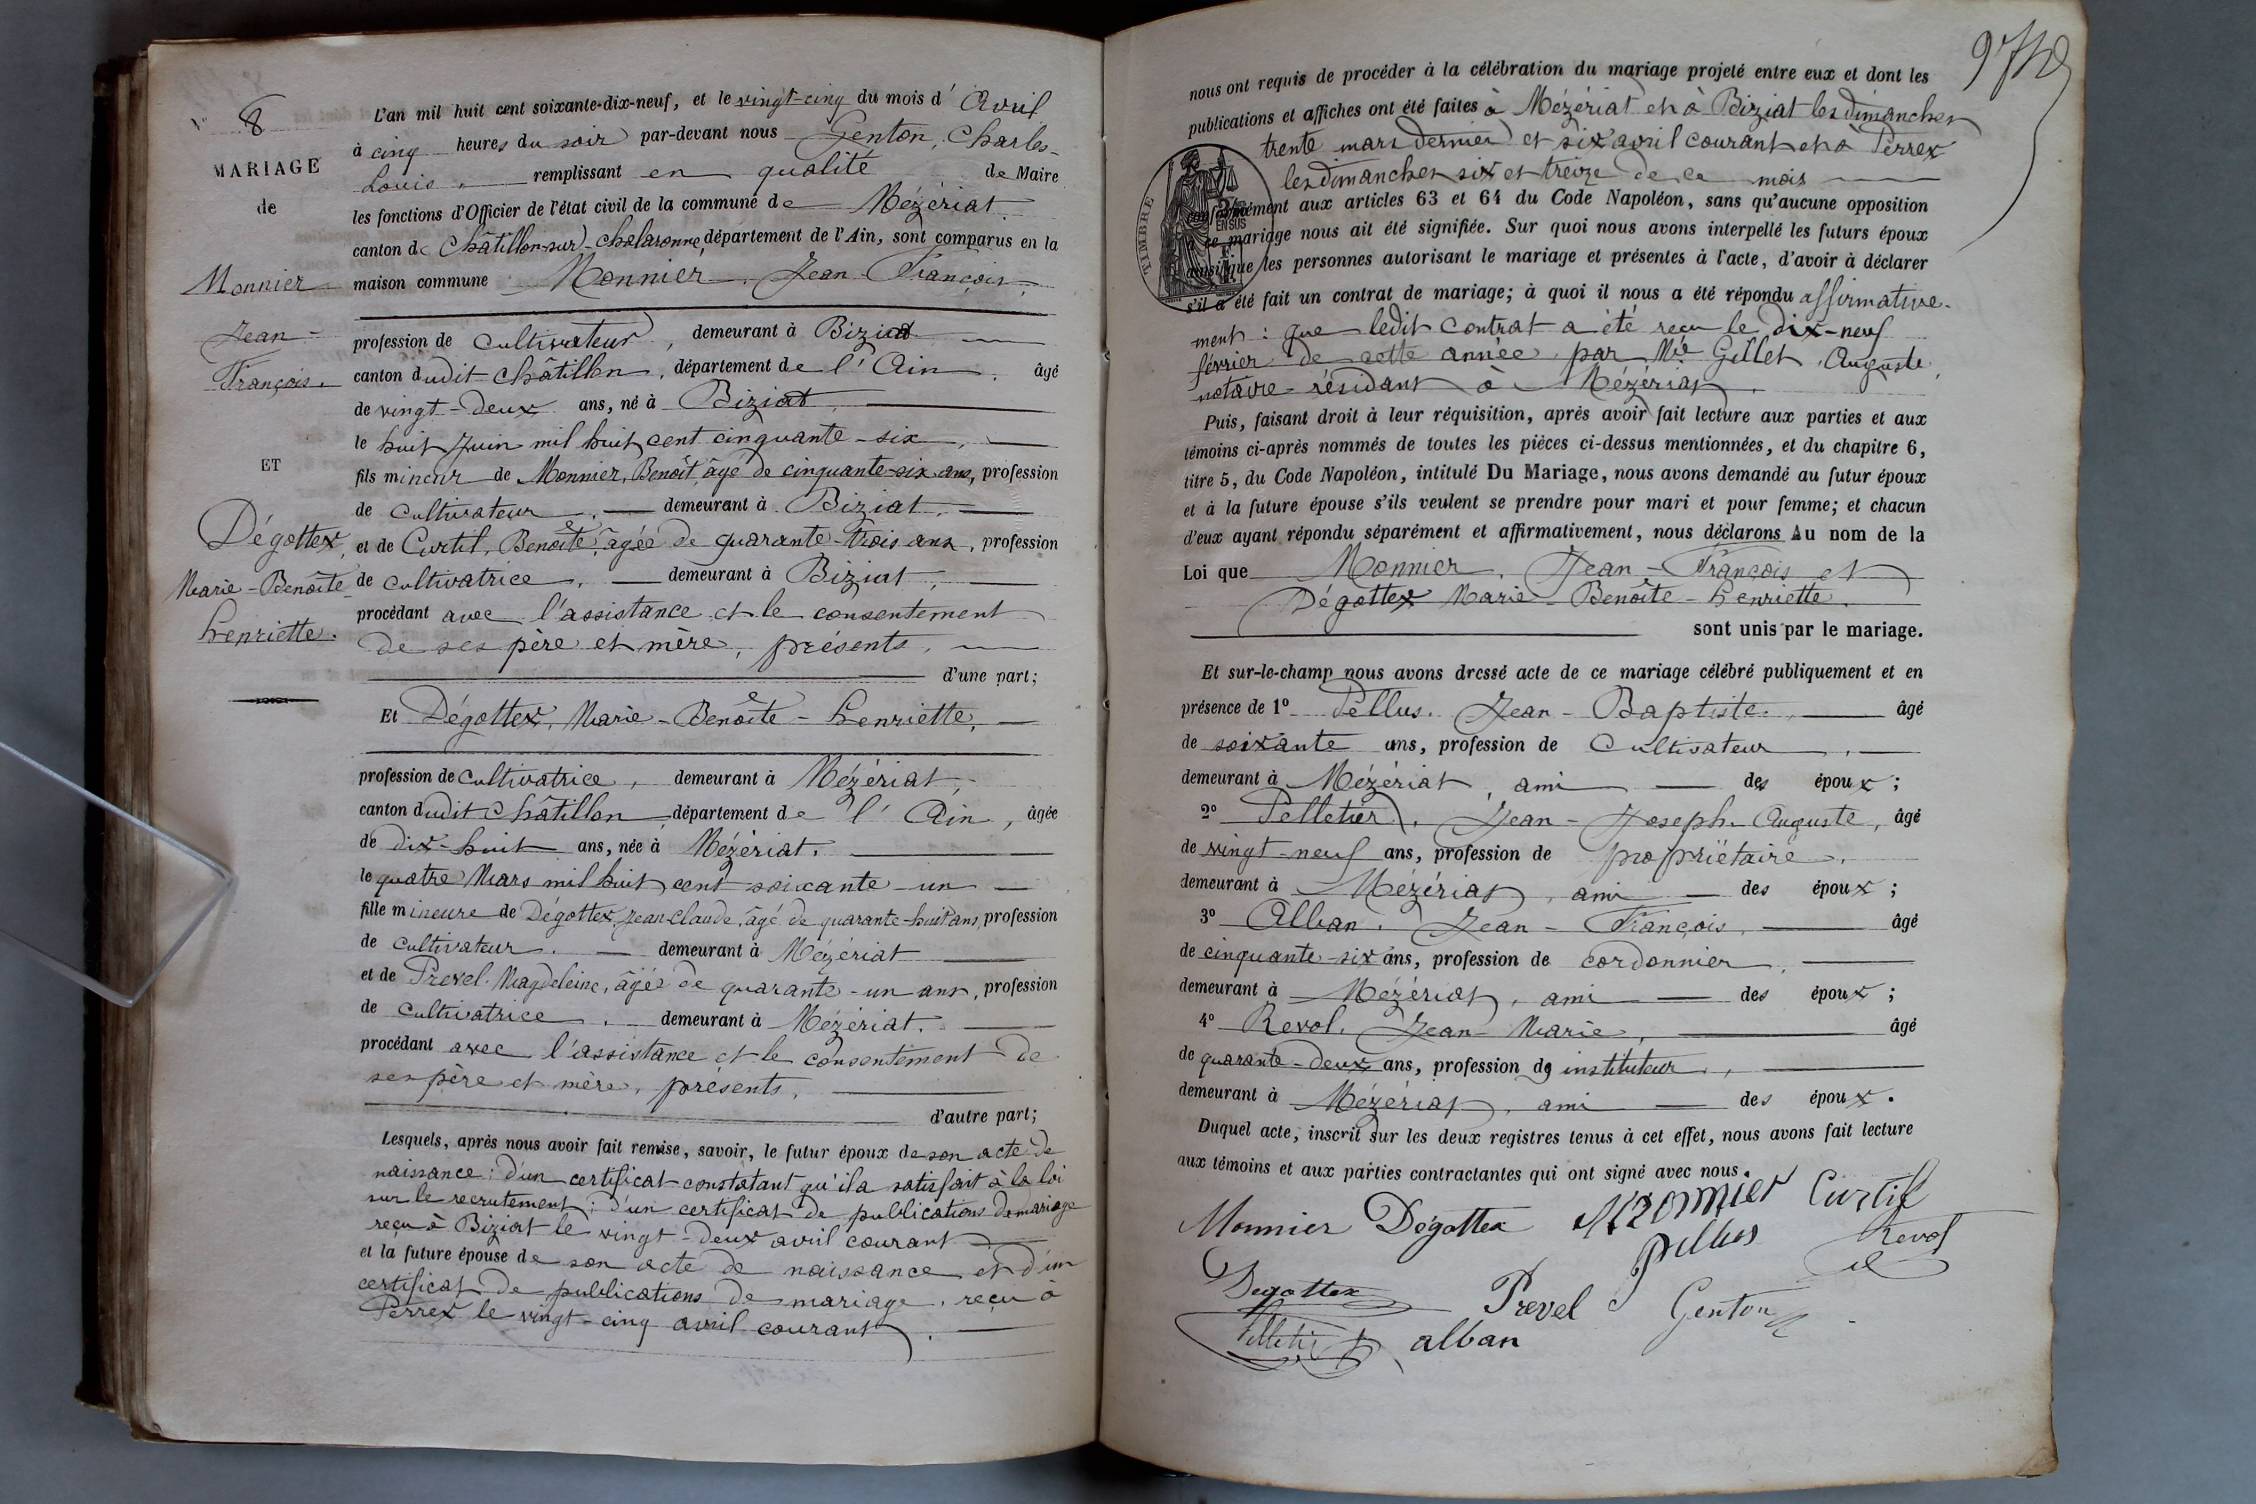 N° 8
MARIAGE
de
Monnier
Jean-
François.
ET
Dégottex,
Marie-Benoîte-
henriette.
L'an mil huit cent soixante-dix-neuf, et le vingt-cinq du mois d' Avril
à cinq heures du soir par-devant nous Genton, Charles-
Louis, remplissant en qualité de Maire
les fonctions d'Officier de l'état civil de la commune de Mézériat.
canton de Châtillon-sur-Chalaronne, département de l'Ain, sont comparus en la
maison commune Monnier, Jean-François,
profession de cultivateur, demeurant à Biziat
canton dudit Châtillon, département de l'Ain, âgé
de vingt-deux ans, né à Biziat,
le huit Juin mil huit cent cinquante-six,
fils mineur de Monnier, Benoît, âgé de cinquante-six ans, profession
de cultivateur, demeurant à Biziat,
et de Curtil, Benoîte, âgée de quarante-trois ans, profession
de cultivatrice, demeurant à Biziat,
procédant avec l'assistance et le consentement
de ses père et mère, présents,
d'une part;
Et Dégottex, Marie-Benoîte-henriette,
profession de cultivatrice, demeurant à Mézériat,
canton dudit Châtillon, département de l'Ain, âgée
de dix-huit ans, née à Mézériat,
le quatre Mars mil huit cent soixante-un
fille mineure de Dégottex, Jean-Claude, âgé de quarante-huit ans, profession
de cultivateur, demeurant à Mézériat
et de Prevel, Magdeleine, âgée de quarante-un ans, profession
de cultivatrice, demeurant à Mézériat,
procédant avec l'assistance et le consentement de
ses père et mère, présents,
d'autre part;
Lesquels, après nous avoir fait remise, savoir, le futur époux de son acte de
naissance; d'un certificat constatant qu'il a satisfait à la loi
sur le recrutement; d'un certificat de publications de mariage
reçu à Biziat le vingt-deux avril courant
et la future épouse de son acte de naissance et d'un
certificat de publications de mariage, reçu à
Perrex le vingt-cinq avril courant.
nous ont requis de procéder à la célébration du mariage projeté entre eux et dont les
publications et affiches ont été faites à Mézériat et à Biziat les dimanches
trente mars dernier et six avril courant et à Perrex
les dimanches six et treize de ce mois
TIMBRE
EN SUS
conformément aux articles 63 et 64 du Code Napoléon, sans qu'aucune opposition
à ce mariage nous ait été signifiée. Sur quoi nous avons interpellé les futurs époux
ainsi que les personnes autorisant le mariage et présentes à l'acte, d'avoir à déclarer
s'il a été fait un contrat de mariage; à quoi il nous a été répondu affirmative-
ment: que ledit contrat a été reçu le dix-neuf
février de cette année par Me Gillet, Auguste,
notaire résidant à Mézériat.
Puis, faisant droit à leur réquisition, après avoir fait lecture aux parties et aux
témoins ci-après nommés de toutes les pièces ci-dessus mentionnées, et du chapitre 6,
titre 5, du Code Napoléon, intitulé Du Mariage, nous avons demandé au futur époux
et à la future épouse s'ils veulent se prendre pour mari et pour femme; et chacun
d'eux ayant répondu séparément et affirmativement, nous déclarons Au nom de la
Loi que Monnier, Jean-François et
Dégottex Marie-Benoîte-henriette.
sont unis par le mariage.
Et sur-le-champ nous avons dressé acte de ce mariage célébré publiquement et en
présence de 1° Pellus, Jean-Baptiste, âgé
de soixante ans, profession de Cultivateur,
demeurant à Mézériat, ami des époux;
2° Pelletier, Jean-Joseph-Auguste, âgé
de vingt-neuf ans, profession de propriétaire,
demeurant à Mézériat, ami des époux;
3° Alban, Jean-François, âgé
de cinquante-six ans, profession de cordonnier,
demeurant à Mézériat, ami des époux;
4° Revol, Jean-Marie, âgé
de quarante-deux ans, profession de instituteur,
demeurant à Mézériat, ami des époux.
Duquel acte, inscrit sur les deux registres tenus à cet effet, nous avons fait lecture
aux témoins et aux parties contractantes qui ont signé avec nous.
Monnier Dégottex Monnier Curtil
Pellus Revol
Degottex Prevel Genton
Pelletier alban